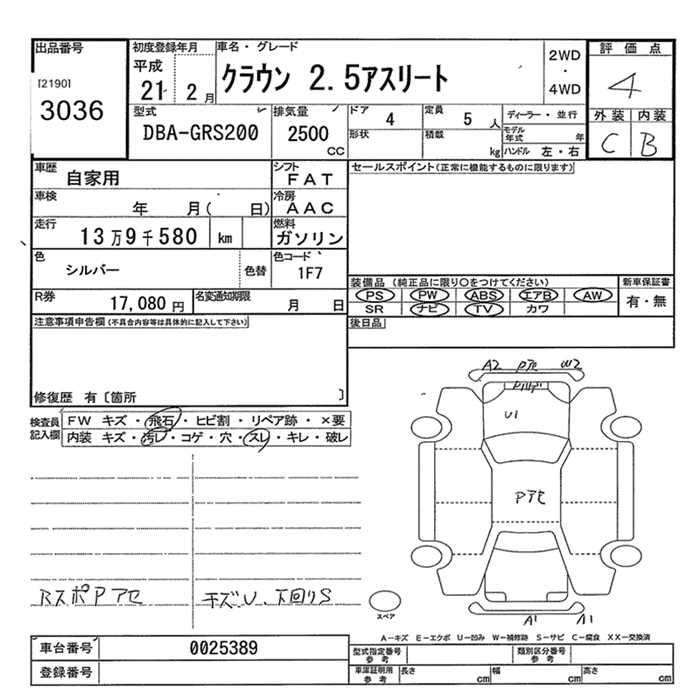 出品番号
[2190]
3036
初度登録年月
平成
21 2月
車名・グレード
クラウン 2.5アスリート
2WD
・
4WD
評価点
4
外装 内装
C B
型式
DBA-GRS200
排気量
2500
CC
ドア
4
定員
5人
形状
積載
kg
ディーラー・並行
モデル年式 年
ハンドル 左・右
車歴
自家用
シフト
FAT
車検
年 月( 日)
冷房
AAC
走行
13万9千580 km
燃料
ガソリン
色
シルバー
色替
色コード
1F7
R券
17,080円
名変通知期限
月 日
セールスポイント(正常に機能するものに限ります)
装備品(純正品に限り○をつけてください)
PS PW ABS エアB AW
SR ナビ TV カワ
新車保証書
有・無
後日品
注意事項申告欄(不具合内容等は具体的に記入して下さい)
修復歴 有〔箇所 〕
検査員記入欄
FW キズ・飛石・ヒビ割・リペア跡・×要
内装 キズ・汚レ・コゲ・穴・スレ・キレ・破レ
A2 Pアセ W2
U1
Pアセ
A1 A1
RスポPアセ
キズU、下回りS
スペア
A−キズ E−エクボ U−凹み W−補修跡 S−サビ C−腐食 XX−交換済
車台番号
0025389
登録番号
型式指定番号
参考
類別区分番号
参考
車庫証明用
参考
長さ cm
幅 cm
高さ cm